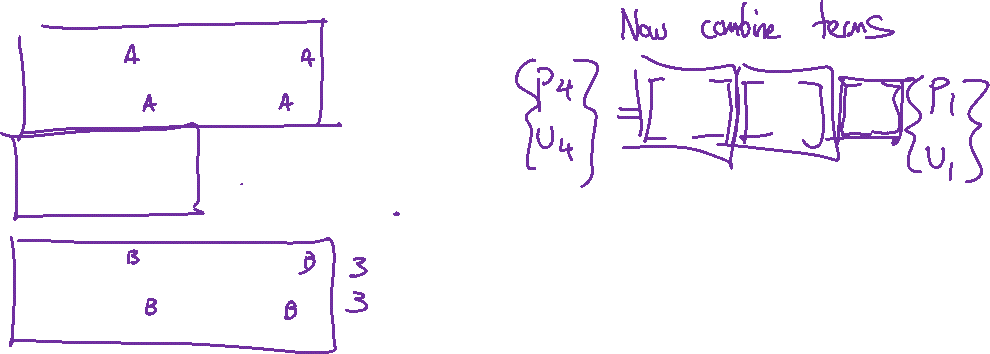 A A
A A
B B 3
B B 3
Now combine terms
{P4} = [ ] [ ] [ ] {P1}
{U4} {U1}